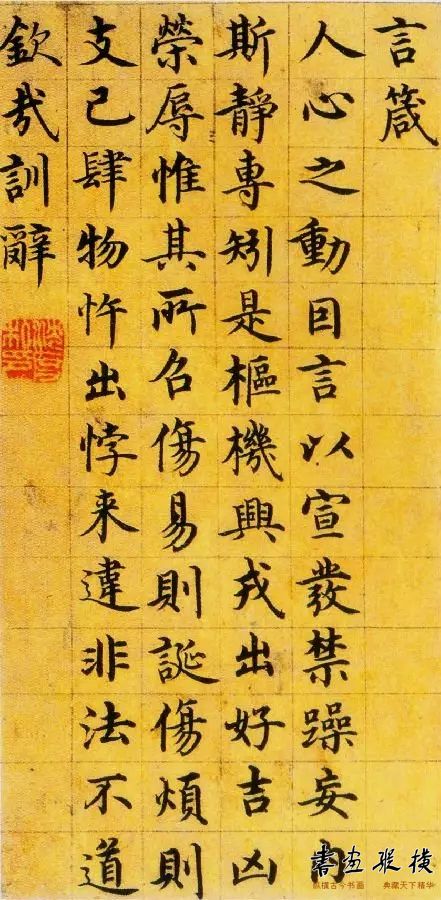 言箴
人心之動囙言以宣發禁躁妄内
斯靜專矧是樞機興戎出好吉凶
榮辱惟其所召傷易則誕傷煩則
支己肆物忤出悖来違非法不道
欽哉訓辭
書畫縱橫
纵横古今书画 典藏天下精华